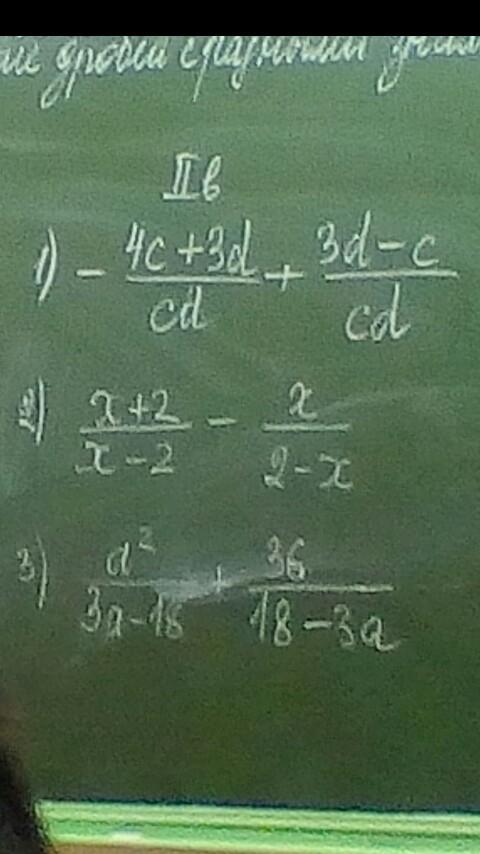 дробей с разными знам
II в
1) - \frac{4c+3d}{cd} + \frac{3d-c}{cd}
2) \frac{x+2}{x-2} - \frac{x}{2-x}
3) \frac{a^2}{3a-18} + \frac{36}{18-3a}